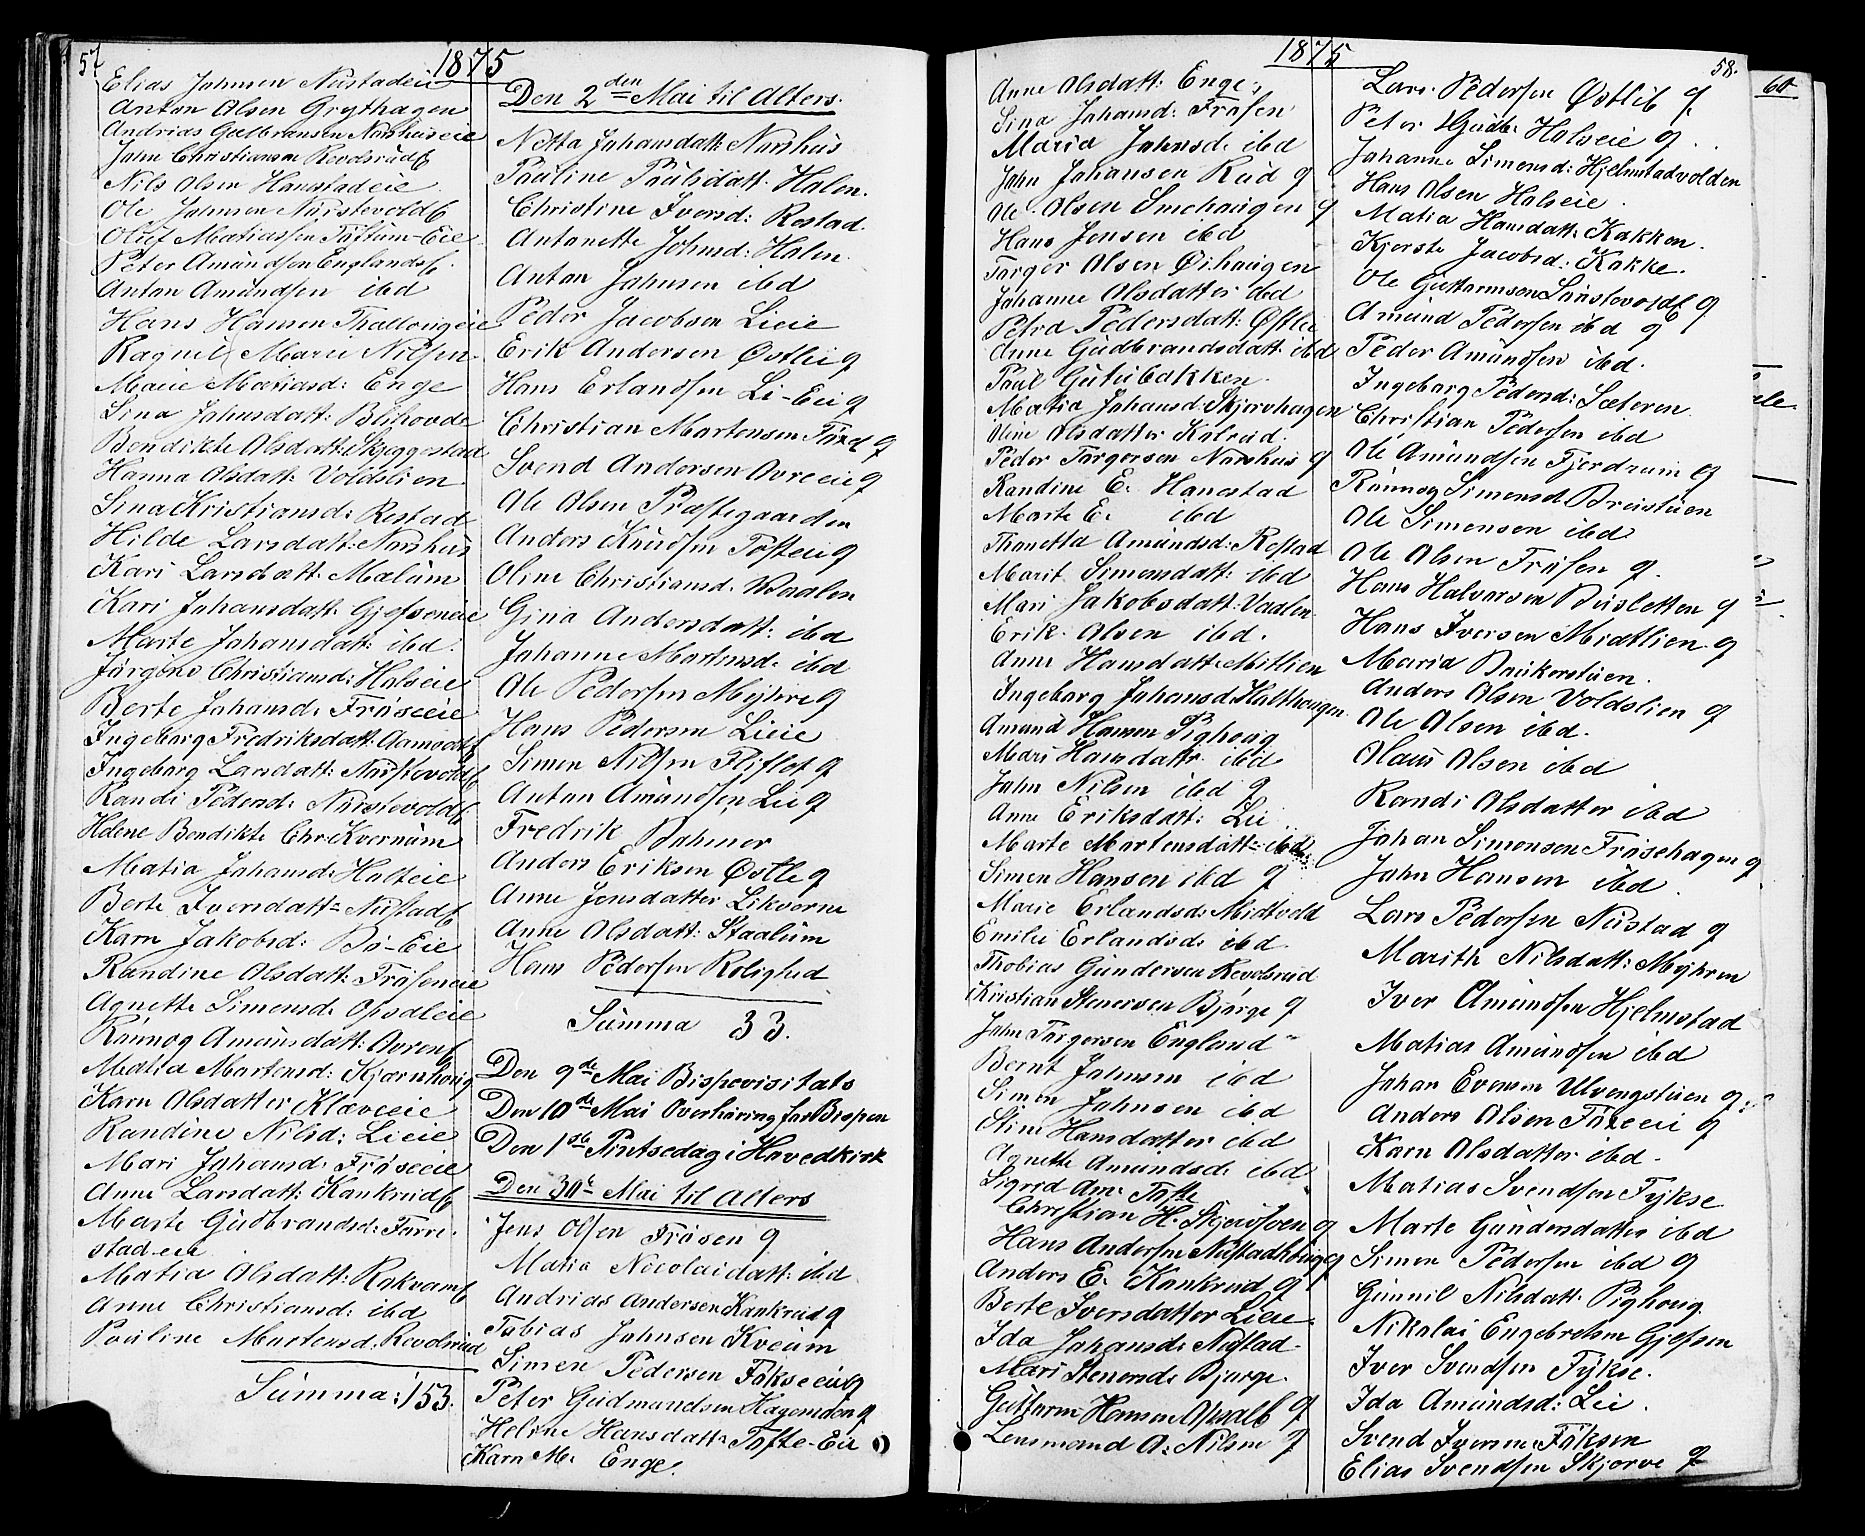 57
1875
Elias Johnsen Nustadeie
Anton Olsen Grythagen
Andrias Gulbransen Norshuseie
John Christiansen Revdsrudf
Nils Olsen Hanstadeie
Ole Johnsen Nustevoldf
Oluf Matiassen Töftum-Eie
Peter Amundsen Englandsf
Anton Amundsen ibd
Hans Hansen Thallougeie
Ragnil Marie Nilsen
Marie Matiasd: Enge
Sina Johnsdatt: Blihovde
Bendikte Olsdatt: Skjeggestad
Hanna Olsdatt: Voldslien
Sina Kristiansd: Restad
Hilde Larsdatt: Norshus
Kari Larsdatt: Mælum
Kari Johansdatt: Gjefseneie
Marte Johansdatt: ibd
Jørgine Christiansd: Holseie
Berte Johansd: Fröseeie
Ingeborg Fredriksdatt: Aamodtf
Ingeborg Larsdatt: Nustevoldf
Randi Pedersd: Nustevoldf
Helene Bendikte Chr: Kvernum
Matia Johansd: Holteie
Berte Iversdatt: Nustadf
Karn Jakobsd: Bö-Eie
Randine Olsdatt: Fröseneie
Agnette Simensd: Opsaleie
Rönnog Amunsdatt: Ovrenf
Matia Martensd: Kjærnhoug
Karn Olsdatter Klæveeie
Randine Nilsd: Lieie
Mari Johansd: Fröseeie
Anne Larsdatt: Kankrudf
Marte Gudbrandsd: Torre-
stad-eie
Matia Olsdatt: Rokvamf
Anne Christiansd: ibd
Pouline Martensd: Revdsrud
Summa: 153.
Den 2den Mai til Alters.
Netta Johansdatt: Norshus
Pauline Paulsdatt: Holen.
Christine Iversd: Restad.
Antonette Johnsd: Holen.
Anton Johnsen ibd
Peder Jacobsen Lieie
Erik Andersen Østlie g
Hans Erlandsen Li-Eie g
Christian Martensen Föxe g
Svend Andersen Ovreeie g
Ole Olsen Præstegaarden
Anders Knudsen Tofteeie g
Oline Christiansd: Waalen
Gina Andersdatt: ibd
Johanne Martensd: ibd
Ole Pedersen Mÿhre g
Hans Pedersen Lieie
Simen Nilsen Fliflet g
Anton Amundsen Lie g
Fredrik Bohmer
Anders Eriksen Østlie g
Anne Jensdatter Likverne
Anne Olsdatt: Staalum
Hans Pedersen Rolighed
Summa 33.
Den 9de Mai Bispevisitats
Den 10de Mai Overhöring for Bispen
Den 1ste Pintsedag i Hovedkirk
Den 30te Mai til Alters
Jens Olsen Frösen g
Matia Nicolaidatt: ibd
Andrias Andersen Kankrud g
Tobias Johnsen Kvéum
Simen Pedersen Fökseeie g
Peter Gudmundsen Hagemoen g
Heline Hansdatt: Tofte-Eie
Karn M: Enge.
1875
58.
Anne Olsdatt: Enge,
Sina Johansd: Frösen
Maria Johnsd: ibd
John Johansen Rud g
Ole Olsen Smehaugen g
Hans Jensen ibd
Torger Olsen Øihaugen
Johanne Olsdatter ibd
Petra Pedersdatt: Østlie
Anne Gudbrandsdatt: ibd
Paul Gutubakken.
Matia Johansd: Skjervhagen
Oline Olsdatter Kalrud.
Peder Torgersen Norshus g
Randine E: Hanestad
Marte E: ibd
Thonetta Amundsd: Restad
Marit Simensdatt: ibd
Mari Jakobsdatt: Vaalen
Erik Olsen ibd.
Anne Hansdatt: Mitlien
Ingeborg Johansd: Kalthaugen
Amund Hansen Pighoug
Mari Hansdatter ibd
John Nilsen ibd g
Anne Eriksdatt: Lie
Marte Martensdatt: ibd
Simen Hansen ibd g
Marie Erlandsd: Midtveld
Emilie Erlandsd: ibd
Thobias Gundersen Revdsrud
Kristian Stenersen Bjørge g
John Torgersen England
Bernt Johnsen ibd
Simen Johnsen ibd
Stine Hansdatter ibd
Agnethe Amundsd: ibd
Sigrid Am: Tofte
Christian H. Skjerdsven g
Hans Andersen Nustadhöug g
Anders E: Kankrud g
Berte Iversdatter Lieie
Ida Johansd: Nustad
Mari Stenersd: Bjørge.
Guttorm Hansen Opsalf g
Lensmand A: Nilsen g
Lars Pedersen Østlif g
Peter Gudb: Holseie g
Johanne Simensd: Hjelmstadvolden
Hans Olsen Holseie
Matia Hansdatt: Kakken.
Kjerste Jacobsd: Kakke.
Ole Guttormsen Snustevoldf g
Amund Pedersen ibd g
Peder Amundsen ibd.
Ingeborg Pedersd: Sæteren
Christian Pedersen ibd
Ole Amundsen Fjerdrum g
Rönnog Simensd: Breistuen
Ole Simensen ibd
Ole Olsen Frösen g.
Hans Halvorsen Busletten g
Hans Iversen Midtlien g
Maria Bankerstuen.
Anders Olsen Voldslien g
Ole Olsen ibd.
Olaus Olsen ibd
Randi Olsdatter ibd
Johan Simensen Frösehagen g
John Hansen ibd
Lars Pedersen Nustad g
Marith Nilsdatt: Mÿhren
Iver Amundsen Hjelmstad
Matias Amundsen ibd
Johan Evensen Ulvengstuen g
Anders Olsen Föxeeie g
Karn Olsdatter ibd.
Matias Svendsen Fÿkse
Marte Gundersdatter ibd
Simen Pedersen ibd g
Gunnil Nilsdatt: Pighoug.
Nikolai Engebretsen Gjefsen
Iver Svendsen Fÿkse.
Ida Amundsd: Lie.
Svend Iversen Föksen
Elias Svendsen Skjerve g
60